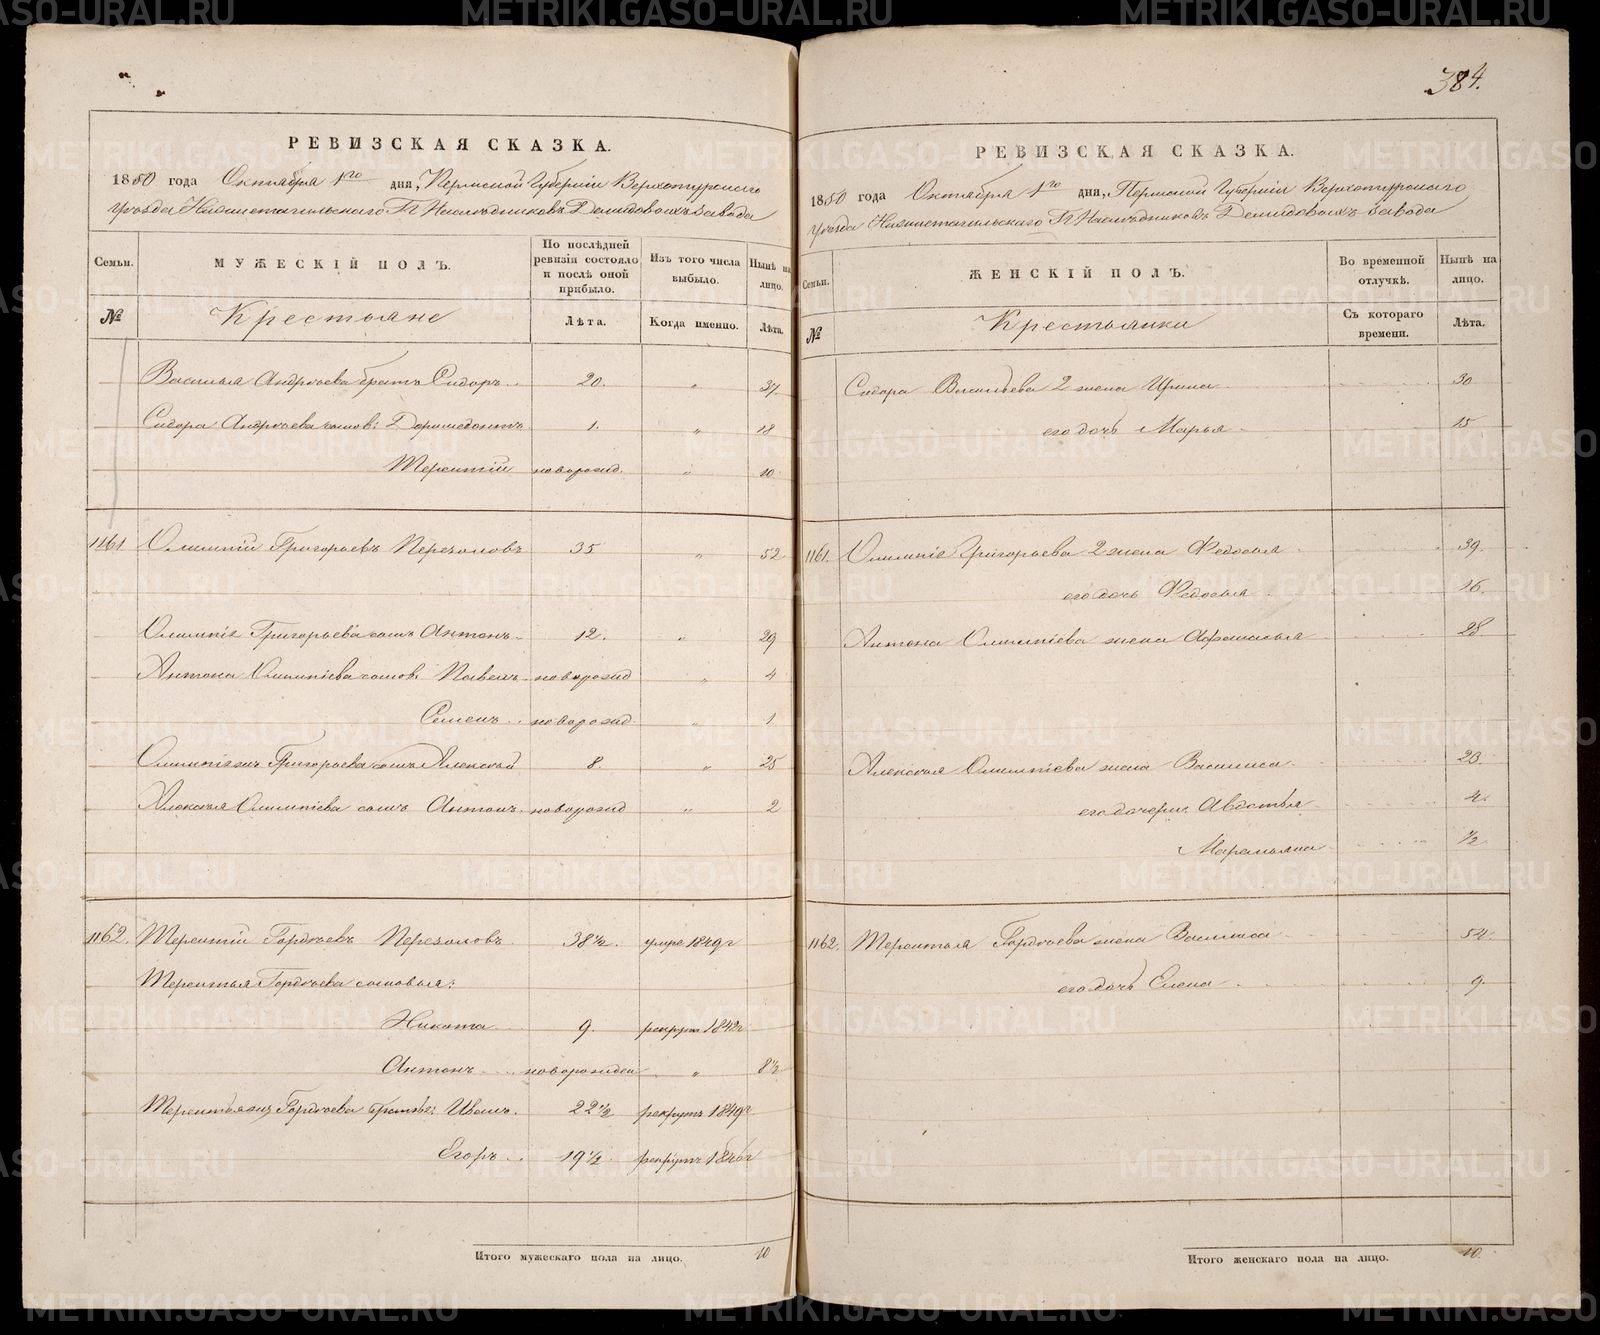 384.
РЕВИЗСКАЯ СКАЗКА.
1850 года Октября 1го дня, Пермской Губерніи Верхотурскаго
уѣзда Нижнетагильскаго Гг Наслѣдниковъ Демидовыхъ завода
Семьи.
МУЖЕСКІЙ ПОЛЪ.
По послѣдней ревизіи состояло и послѣ оной прибыло.
Изъ того числа выбыло.
Нынѣ на лицо.
№
Крестьяне
Лѣта.
Когда именно.
Лѣта.
Василья Андрѣева братъ Сидоръ 20. " 37
Сидора Андрѣева сынов: Доримедонтъ 1. " 18
Терентій новорожд. " 10
1161 Олимпій Григорьевъ 35 " 52
Олимпія Григорьева сынъ Антонъ 12. " 29
Антона Олимпіева сынов: Павелъ новорожд " 4
Семенъ новорожд " 1
Олимпія Григорьева сынъ Алексѣй 8. " 25
Алексѣя Олимпіева сынъ Антонъ новорожд " 2
1162. Терентій Гордѣевъ 38 1/2. умре 1849 г
Терентья Гордѣева сыновья:
Никита 9. рекрут 1842 г
Антонъ новорожден " 8 1/2
Гордѣева братья: Иванъ. 22 1/2 рекрутъ 1840 г
Егоръ 19 1/2 рекрутъ 1846 г
Итого мужескаго пола на лицо. 10
РЕВИЗСКАЯ СКАЗКА.
1850 года Октября 1го дня, Пермской Губерніи Верхотурскаго
уѣзда Нижнетагильскаго Гг Наслѣдниковъ Демидовыхъ завода
Семьи.
ЖЕНСКІЙ ПОЛЪ.
Во временной отлучкѣ.
Нынѣ на лицо.
№
Крестьянки
Съ котораго времени.
Лѣта.
Сидора Васильева 2 жена Ирина 30
его дочь Марья 15
1161. Олимпія Григорьева 2 жена Федосья 39.
его дочь Федосья 16.
Антона Олимпіева жена Афанасья 28
Алексѣя Олимпіева жена Василиса 20
его дочери: Авдотья 4.
Маремьяна 1/2
1162. Терентья Гордѣева жена Василиса 54.
его дочь Елена 9.
Итого женскаго пола на лицо. 10.
METRIKI.GASO-URAL.RU